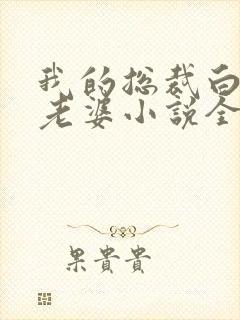 我的总裁白
老婆小说全
果貴貴